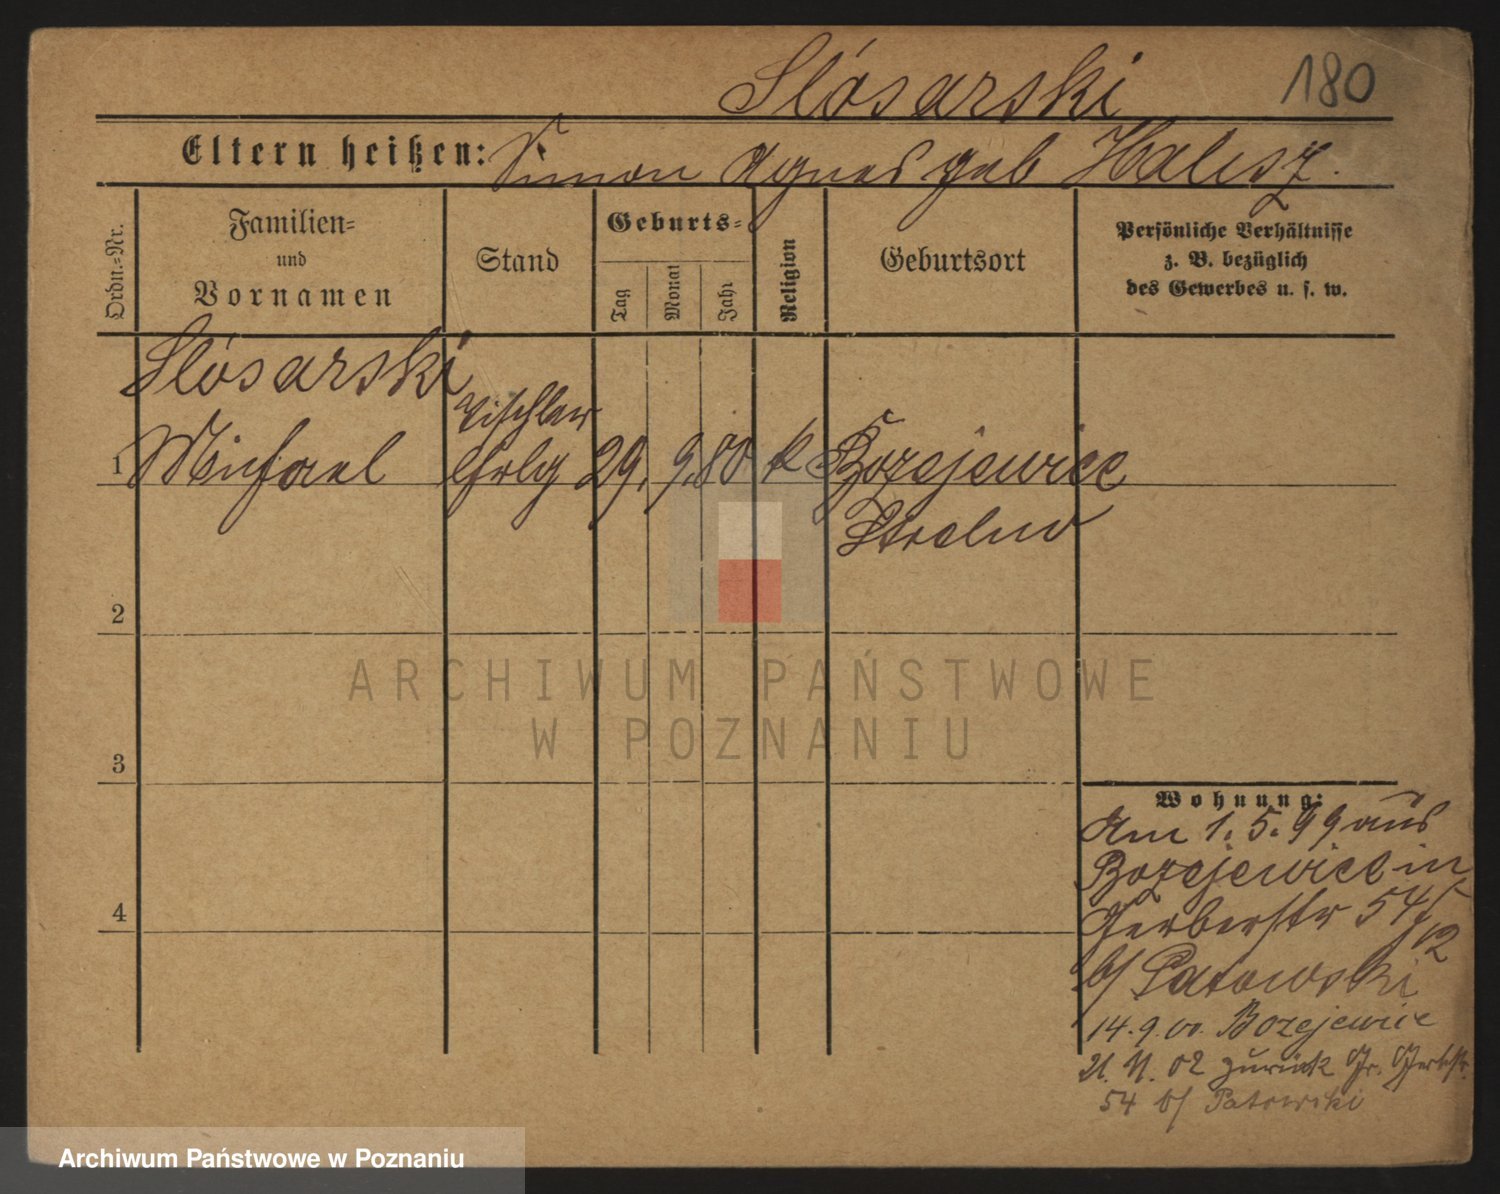 Slósarski 180
Eltern heißen: Simon Agnes geb Halisz.
Ordn.-Nr.
Familien-
und
Vornamen
Stand
Geburts-
Tag
Monat
Jahr
Religion
Geburtsort
Persönliche Verhältnisse
z. B. bezüglich
des Gewerbes u. s. w.
Slósarski
Tischler
1 Michael lehrlg 29. 9. 80 k Bozejewice
Strelno
2
ARCHIWUM PAŃSTWOWE
W POZNANIU
3
Wohnung:
Am 1. 5. 99 aus
Bozejewice in
4
Gerberstr 54/
12
b/ Patowski
14. 9. 00. Bozejewice
21. 11. 02 zurück Gr. Gerbstr.
54 b/ Patowski
Archiwum Państwowe w Poznaniu